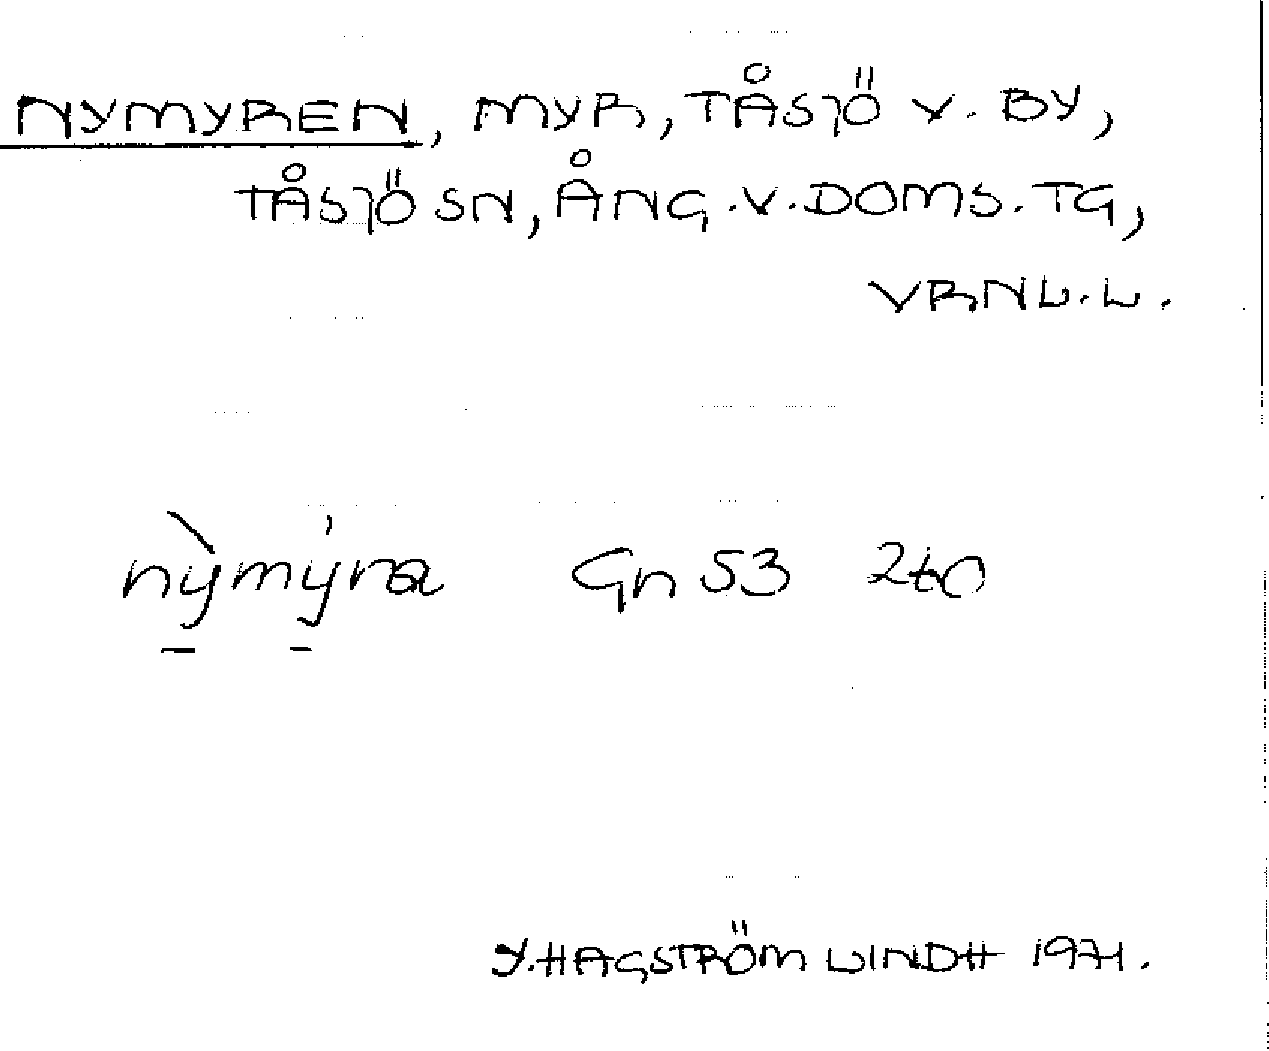 NYMYREN, MYR, TÅSJÖ V. BY,
TÅSJÖ SN, ÅNG.V.DOMS.TG,
VRNL.L.
nỳmýra Gn 53 260
Y.HAGSTRÖM LINDH 1971.